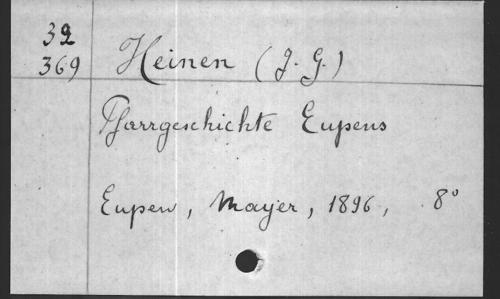 32
369 Heinen (J. G.)
Pfarrgeschichte Eupens
Eupen, Mayer, 1896, 8°